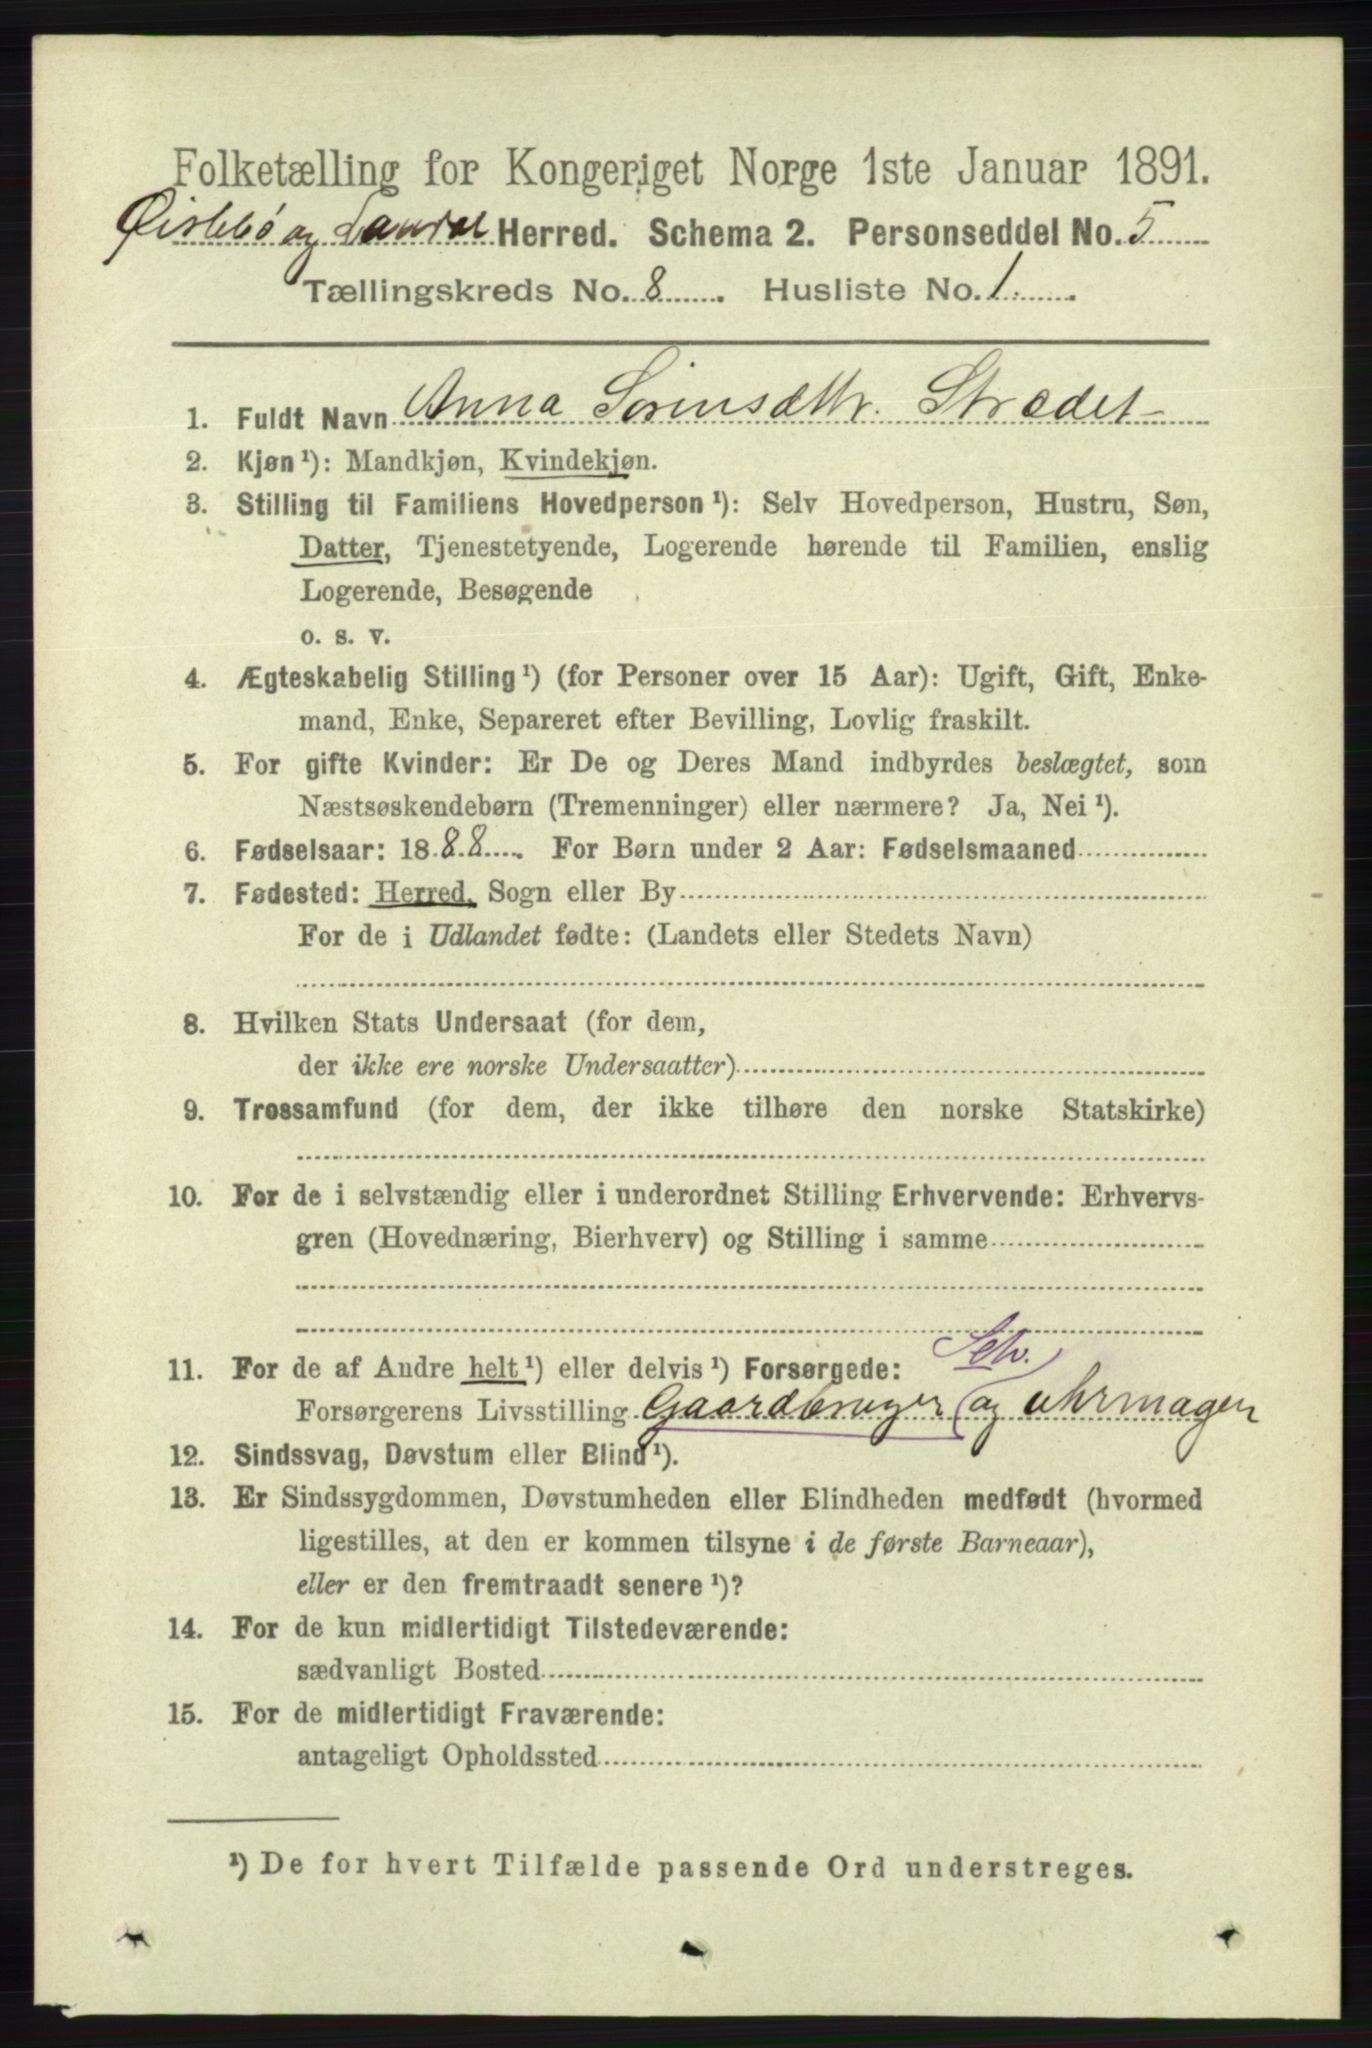 Folketælling for Kongeriget Norge 1ste Januar 1891.
Øislebø og Laudal Herred. Schema 2. Personseddel No. 5
Tællingskreds No. 8. Husliste No. 1.
1. Fuldt Navn Anna Sørinsdttr. Strædet
2. Kjøn ¹): Mandkjøn, Kvindekjøn.
3. Stilling til Familiens Hovedperson ¹): Selv Hovedperson, Hustru, Søn,
Datter, Tjenestetyende, Logerende hørende til Familien, enslig
Logerende, Besøgende
o. s. v.
4. Ægteskabelig Stilling ¹) (for Personer over 15 Aar): Ugift, Gift, Enke-
mand, Enke, Separeret efter Bevilling, Lovlig fraskilt.
5. For gifte Kvinder: Er De og Deres Mand indbyrdes beslægtet, som
Næstsøskendebørn (Tremenninger) eller nærmere? Ja, Nei ¹).
6. Fødselsaar: 1888. For Børn under 2 Aar: Fødselsmaaned
7. Fødested: Herred, Sogn eller By
For de i Udlandet fødte: (Landets eller Stedets Navn)
8. Hvilken Stats Undersaat (for dem,
der ikke ere norske Undersaatter)
9. Trossamfund (for dem, der ikke tilhøre den norske Statskirke)
10. For de i selvstændig eller i underordnet Stilling Erhvervende: Erhvervs-
gren (Hovednæring, Bierhverv) og Stilling i samme
Selv.
11. For de af Andre helt ¹) eller delvis ¹) Forsørgede:
Forsørgerens Livsstilling Gaardbruger (og uhrmagen
12. Sindssvag, Døvstum eller Blind ¹).
13. Er Sindssygdommen, Døvstumheden eller Blindheden medfødt (hvormed
ligestilles, at den er kommen tilsyne i de første Barneaar),
eller er den fremtraadt senere ¹)?
14. For de kun midlertidigt Tilstedeværende:
sædvanligt Bosted
15. For de midlertidigt Fraværende:
antageligt Opholdssted
¹) De for hvert Tilfælde passende Ord understreges.